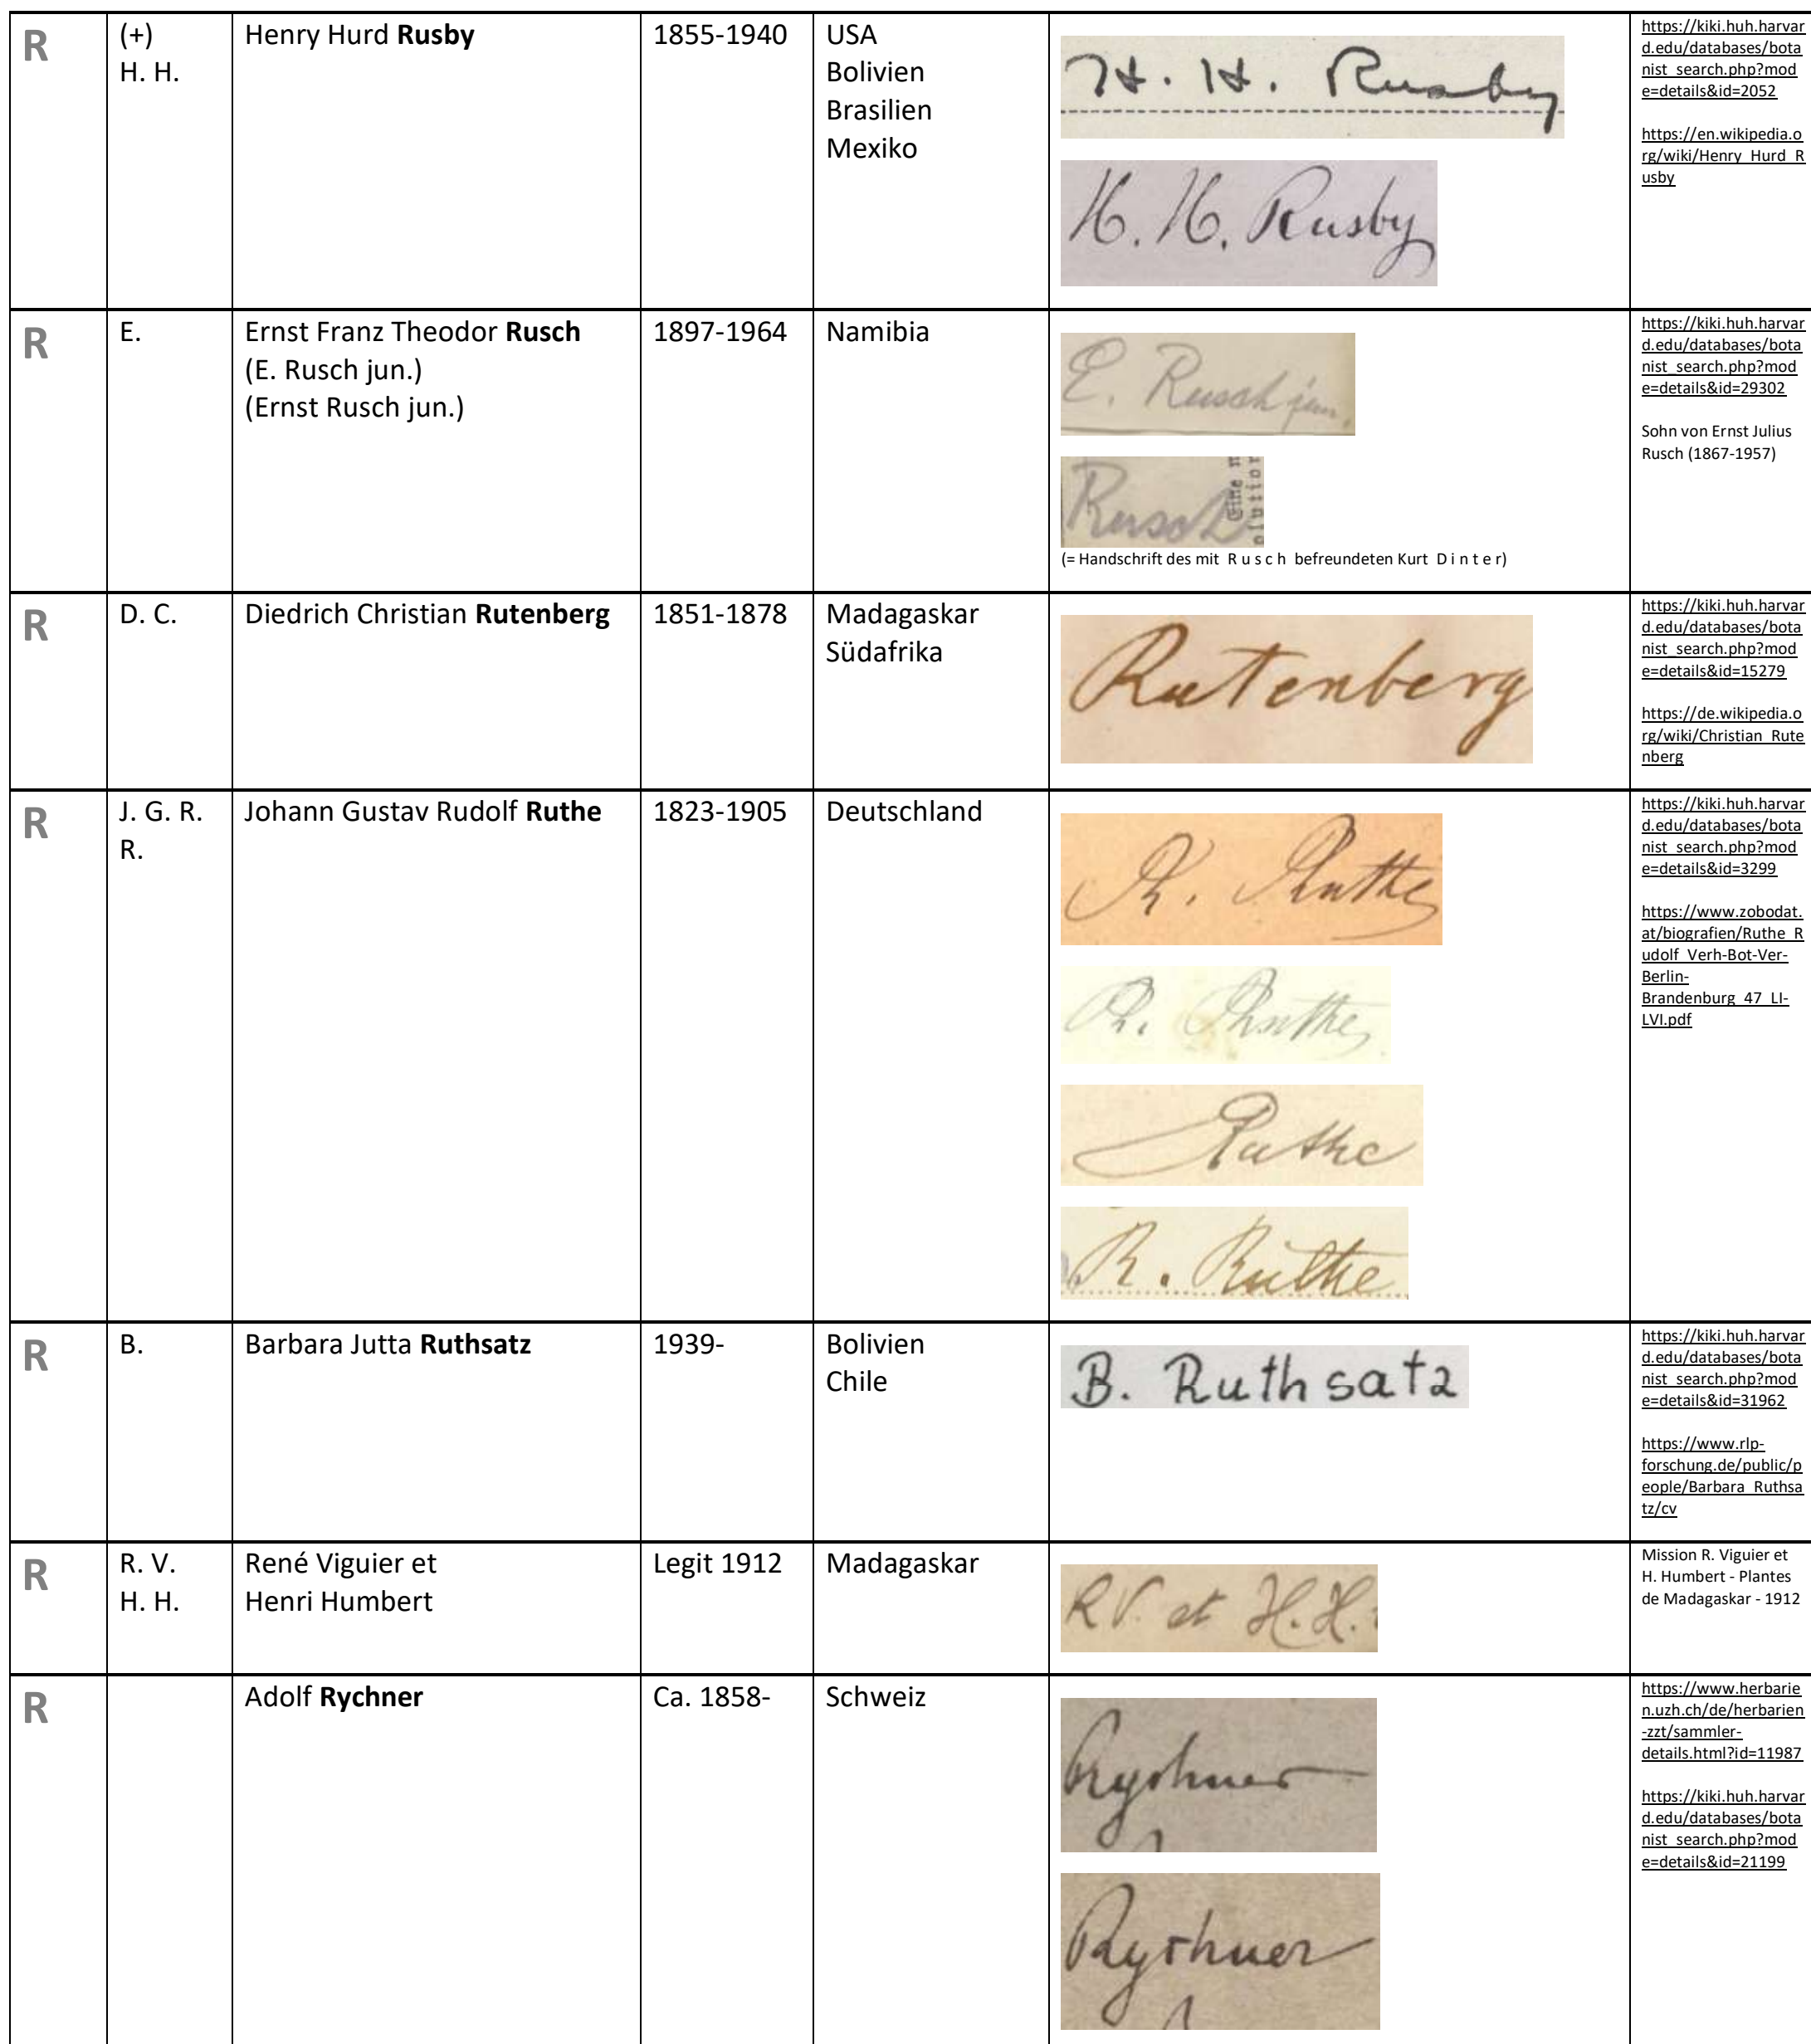 R
(+)
H. H.
Henry Hurd Rusby
1855-1940
USA
Bolivien
Brasilien
Mexiko
H. H. Rusby
H. H. Rusby
https://kiki.huh.harvar
d.edu/databases/bota
nist_search.php?mod
e=details&id=2052
https://en.wikipedia.o
rg/wiki/Henry_Hurd_R
usby
R
E.
Ernst Franz Theodor Rusch
(E. Rusch jun.)
(Ernst Rusch jun.)
1897-1964
Namibia
E. Rusch jun.
Rusch
(= Handschrift des mit R u s c h befreundeten Kurt D i n t e r)
https://kiki.huh.harvar
d.edu/databases/bota
nist_search.php?mod
e=details&id=29302
Sohn von Ernst Julius
Rusch (1867-1957)
R
D. C.
Diedrich Christian Rutenberg
1851-1878
Madagaskar
Südafrika
Rutenberg
https://kiki.huh.harvar
d.edu/databases/bota
nist_search.php?mod
e=details&id=15279
https://de.wikipedia.o
rg/wiki/Christian_Rute
nberg
R
J. G. R.
R.
Johann Gustav Rudolf Ruthe
1823-1905
Deutschland
R. Ruthe
R. Ruthe
Ruthe
R. Ruthe
https://kiki.huh.harvar
d.edu/databases/bota
nist_search.php?mod
e=details&id=3299
https://www.zobodat.
at/biografien/Ruthe_R
udolf_Verh-Bot-Ver-
Berlin-
Brandenburg_47_LI-
LVI.pdf
R
B.
Barbara Jutta Ruthsatz
1939-
Bolivien
Chile
B. Ruthsatz
https://kiki.huh.harvar
d.edu/databases/bota
nist_search.php?mod
e=details&id=31962
https://www.rlp-
forschung.de/public/p
eople/Barbara_Ruthsa
tz/cv
R
R. V.
H. H.
René Viguier et
Henri Humbert
Legit 1912
Madagaskar
R V. et H. H.
Mission R. Viguier et
H. Humbert - Plantes
de Madagaskar - 1912
R
Adolf Rychner
Ca. 1858-
Schweiz
Rychner
Rychner
https://www.herbarie
n.uzh.ch/de/herbarien
-zzt/sammler-
details.html?id=11987
https://kiki.huh.harvar
d.edu/databases/bota
nist_search.php?mod
e=details&id=21199